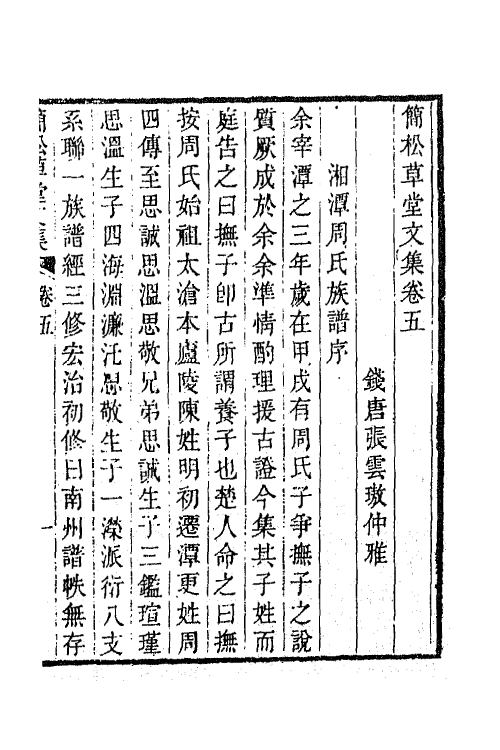 簡松草堂文集卷五
錢唐張雲璈仲雅
湘潭周氏族譜序
余宰潭之三年歲在甲戌有周氏子爭撫子之說
質厥成於余余準情酌理援古證今集其子姓而
庭告之曰撫子卽古所謂養子也楚人命之曰撫
按周氏始祖太滄本廬陵陳姓明初遷潭更姓周
四傳至思誠思溫思敬兄弟思誠生子三鑑瑄瑾
思溫生子四海淵濂汪思敬生子一濚派衍八支
系聯一族譜經三修宏治初修曰南州譜帙無存
簡松草堂文集 卷五 一